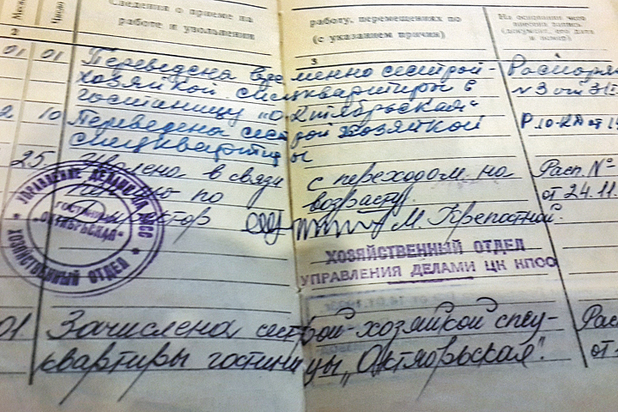 Сведения о приеме на
работу, перемещениях по
На основании чего
внесена запись
работе и увольнении
(с указанием причин)
(документ, его дата
и номер)
Месяц
Число
2
3
4
01 01 Переведена временно сестрой-
хозяйкой спецквартиры в
гостиницу "Октябрьская"
№3 от 31
10 Переведена сестрой хозяйкой
спецквартиры
25 Уволена в связи с переходом на
пенсию по возрасту.
Расп. №
от 24.11.
Директор М. Крепотной.
УПРАВЛЕНИЕ ДЕЛАМИ ЦК КПСС
ГОСТИНИЦА
"ОКТЯБРЬСКАЯ"
ХОЗЯЙСТВЕННЫЙ ОТДЕЛ
ХОЗЯЙСТВЕННЫЙ ОТДЕЛ
УПРАВЛЕНИЯ ДЕЛАМИ ЦК КПСС
01 Зачислена сестрой-хозяйкой спец-
квартиры гостиницы „Октябрьская".